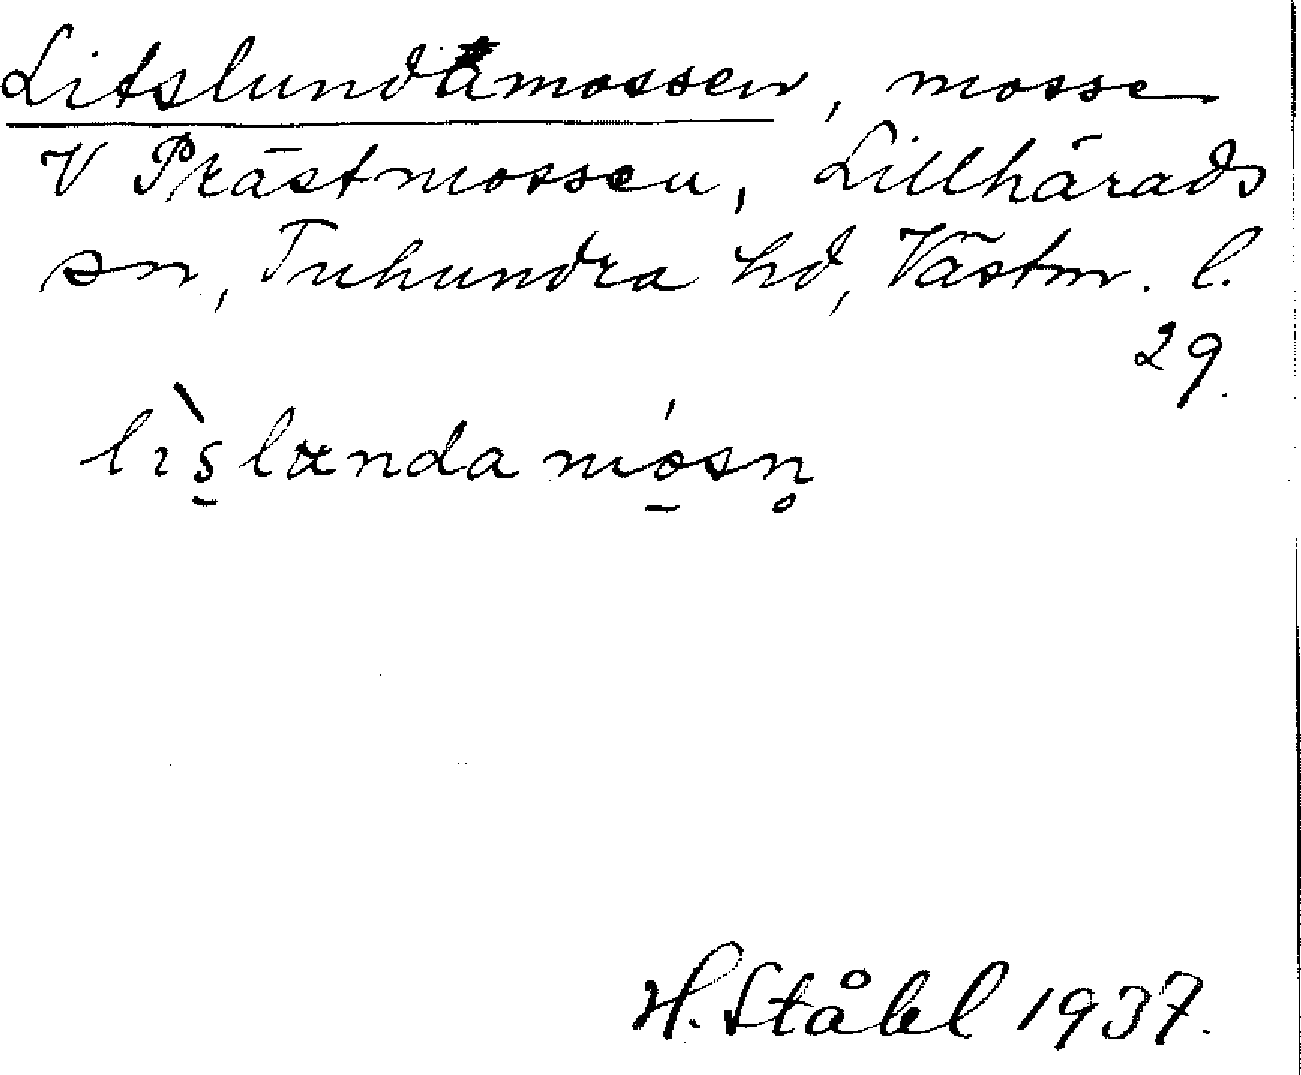 Litslundamossen, mosse
V Prästmossen, Lillhärads
sn, Tuhundra hd, Västm. l.
29.
lìs̠lundamó̠sn̥
H. Ståhl 1937.